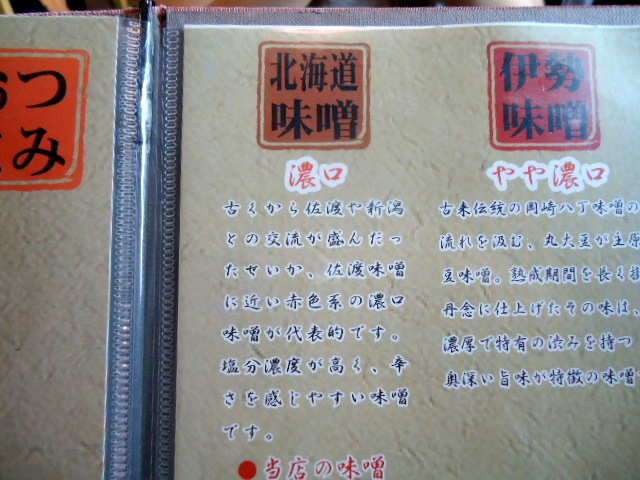 おつ
まみ
北海道
味噌
濃口
古くから佐渡や新潟
との交流が盛んだっ
たせいか、佐渡味噌
に近い赤色系の濃口
味噌が代表的です。
塩分濃度が高く、辛
さを感じやすい味噌
です。
●当店の味噌
伊勢
味噌
やや濃口
古来伝統の岡崎八丁味噌の
流れを汲む、丸大豆が主原
豆味噌。熟成期間を長く掛
丹念に仕上げたその味は、
濃厚で特有の渋みを持つ
奥深い旨味が特徴の味噌